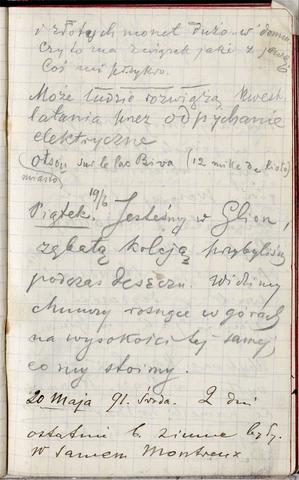 i złotych monet dużo w domu
Czy to ma związek jaki z
Coś mi
Może ludzie rozwiążą kwest.
latania przez odpychanie
elektryczne
Otsou sur le lac Biva (12 mil de Kioto)
miasto
19/6
Piątek. Jesteśmy w Glion,
zębatą koleją przybyliśmy
podczas deszczu. Widzimy
chmury rosnące w górach
na wysokości tej samej
co my stoimy.
20 Maja 91. Środa. 2 dni
ostatnie b. zimne były
w samem Montreux